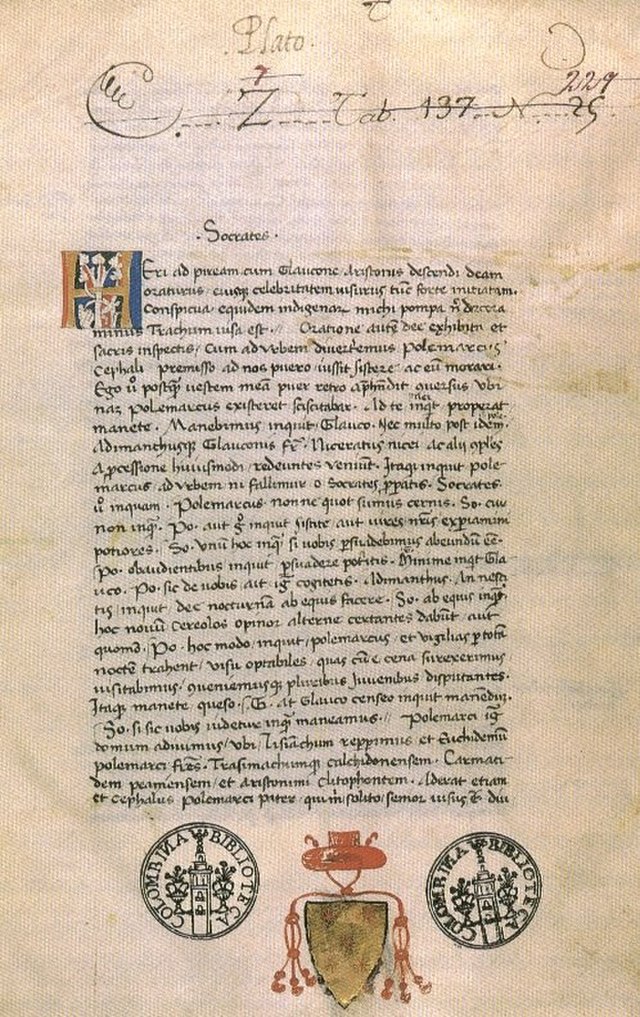 Plato.
7 229
Z Tab. 137 N. 25
. Socrates .
HEri ad piream cum Glaucone Aristonis descendi deam
oraturus / eiusq; celebritatem uisurus tūc forte initiatam.
Conspicua equidem indigenar michi pompa n̄
minus Trachum uisa est . // Oratione autē dee exhibita et
sacris inspectis / Cum ad vrbem diuertemus Polemarcus
Cephali premisso ad nos puero / iussit sistere ac eū morari.
Ego postq uestem meā puer retro quersus vbi
naz Polemarcus existeret sciscitabar . Ad te inq̄t properat
manete . Manebimus inquit / Glauco . Nec multo post idem
Adimanthusq; Glauconis fr̄ . Niceratus nicei ac alij
A pcessione huiusmodi / redeuntes ueniūt . Itaq; inquit pole
marcus / ad vrbem ni fallimur o Socrates ppatis . Socrates
inquam . Polemarcus non ne quot simus cernis . So . cur
non inq . Po . aut inquit sistite aut uires nr̄as
potiores . So . Vnū hoc inq si uobis psuadebimus abeundū
Po . obaudientibus inquit psuadere potitis . Minime inq̄t Gla
uco . Po . sic de uobis aut cogitetis . Adimanthus . An nesci
tis / inquit dee nocturnā ab equis facere . So . ab equis
hoc nouū Cereolos opinor alterne certantes dabūt / aut
quomō . Po . hoc modo / inquit / polemarcus / et vigilias p totā
noctē trahent / visu optabiles / quas cū e cena surexerimus
uisitabimus / queniemusq; pluribus iuuenibus disputantes .
Itaq; manete / queso . G . at Glauco censeo inquit manēdū .
So . si sic uobis uidetur inq maneamus . // Polemarci
domum adiuimus / vbi Lisiāchum repperimus et Euthidemū
polemarci fr̄es . Trasimachumq; calchidonensem . Carmati
dem peamensem / et aristonimi Clitophontem . Aderat etiam
et Cephalus Polemarci pater / qui solito / senior uisus diu
BIBLIOTECA COLOMBINA
BIBLIOTECA COLOMBINA